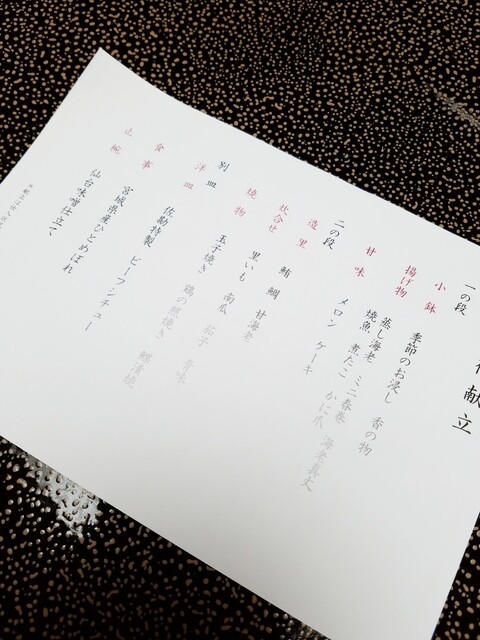 献立
一の段
小鉢 季節のお浸し 香の物
揚げ物 蒸し海老 ミニ春巻 かに爪 海老真丈
焼魚 煮たこ
甘味 メロン ケーキ
二の段
造里 鮪 鯛 甘海老
炊合せ 里いも 南瓜 茄子 青味
焼物 玉子焼き 鶏の照焼き
別皿
洋皿 佐勘特製 ビーフシチュー
食事 宮城県産ひとめぼれ
止椀 仙台味噌仕立て